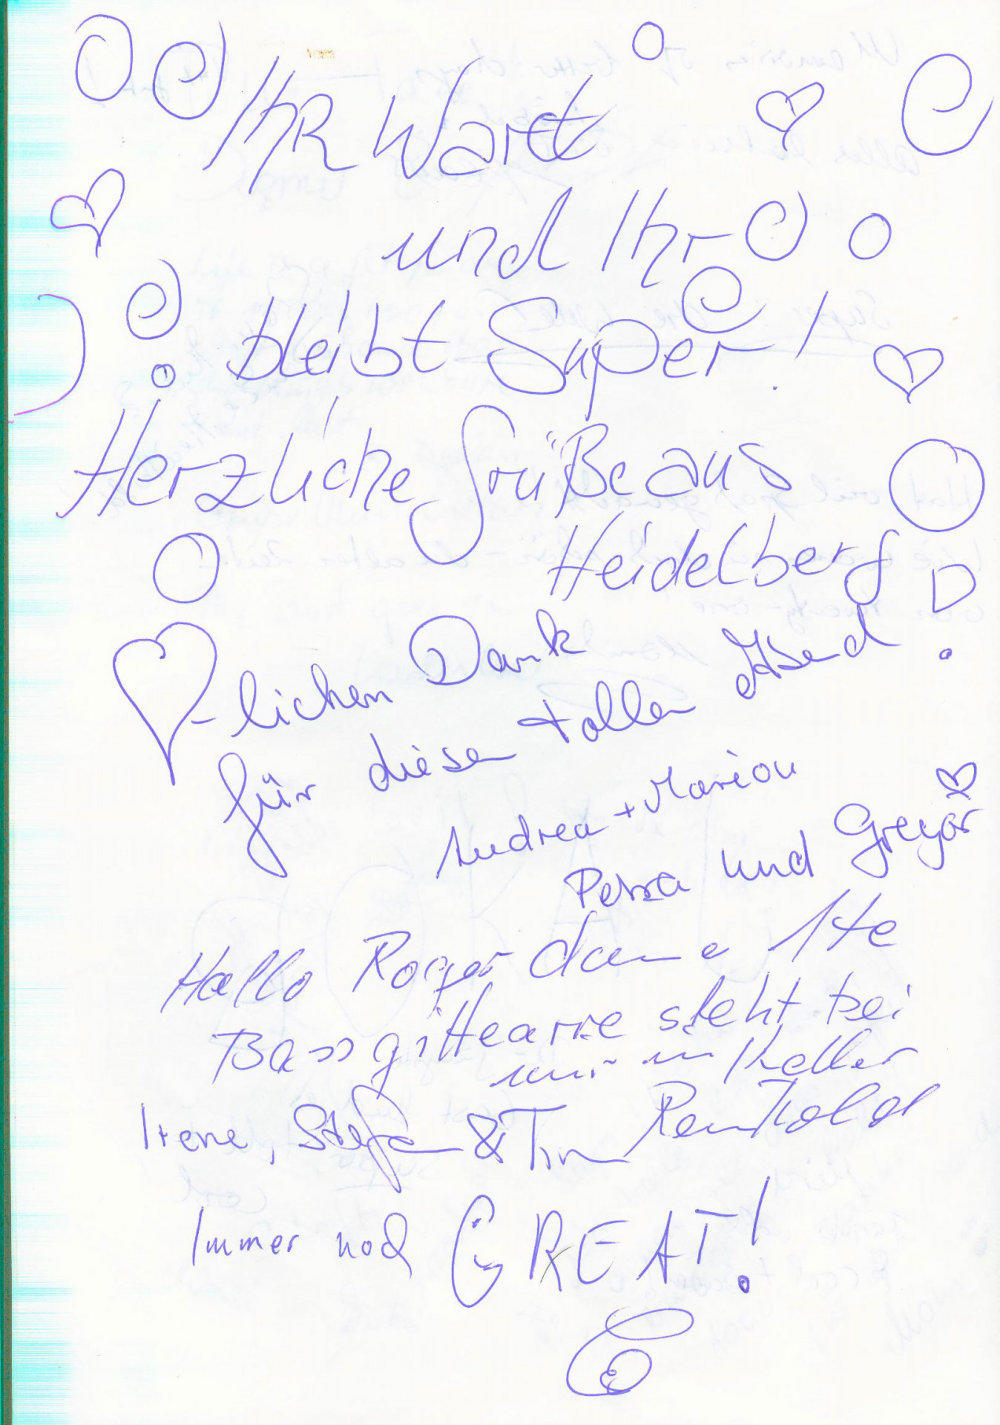 Ihr Wart
und Ihr
bleibt Super!
Herzliche Grüße aus
Heidelberg
lichen Dank !
für diesen tollen Abend
Andrea + Marion
Petra und Gregor
Hallo Roger deine 1te
Bassgittearre steht bei
mir im Keller
Irene, Stefan & Tim Reinhold
Immer noch GREAT!